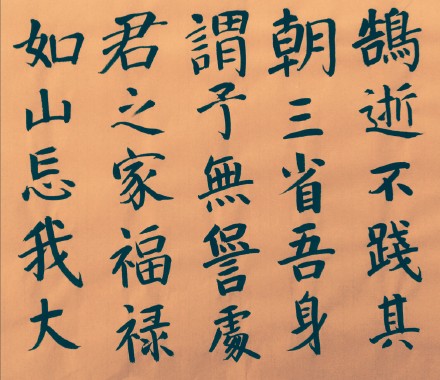 鵠逝不踐其
朝三省吾身
謂予無諐處
君之家福禄
如山忘我大